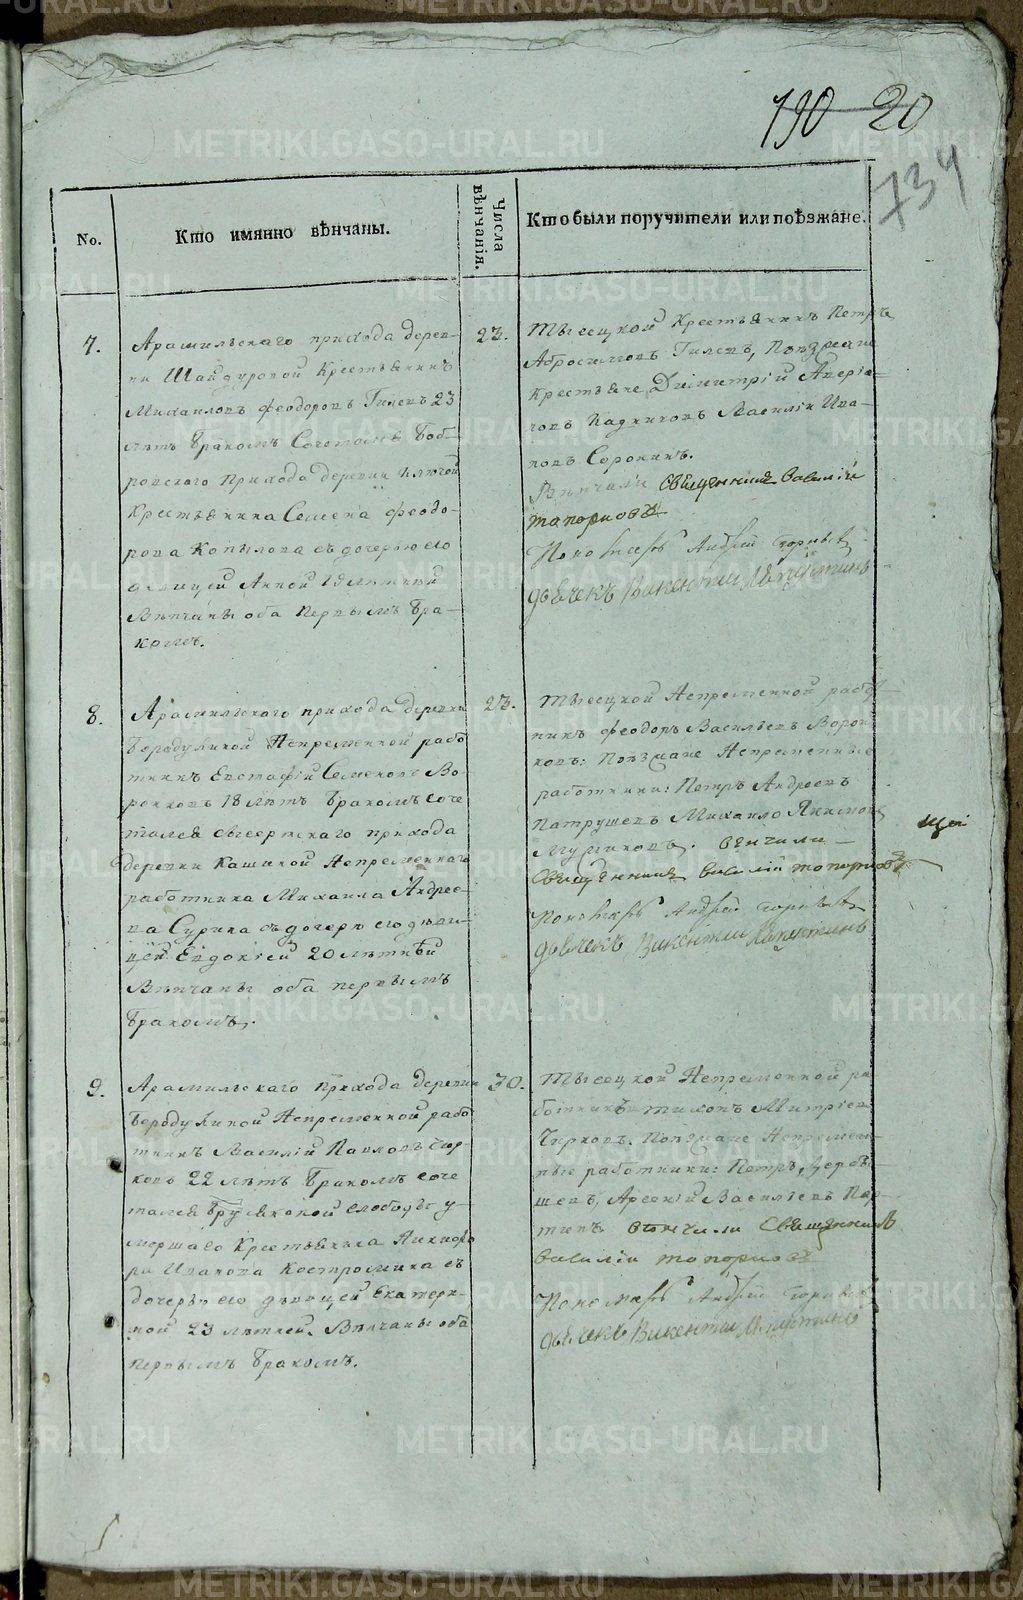 190 20
734
No.
Кто имянно вѣнчаны.
Числа вѣнчанія.
Кто были поручители или поѣзжане.
7.
Арамильскаго прихода дерев-
ни Шайдуровой крестьянинъ
Михаиловъ Феодоровъ Гилевъ 23
лѣтъ бракомъ сочетался Боб-
ровскаго прихода деревни Ключей
крестьянина Семена Феодо-
рова Копылова съ дочерью его
девицей Анной 19 лѣтней
Вѣнчаны оба первымъ бра-
комъ.
23.
Тысецкой крестьянинъ Петръ
Абросимовъ Гилевъ, Поѣзжане
крестьяне Димитрій Аверіа-
новъ Кадниковъ Василій Ива-
новъ Сорокинъ.
Вѣнчали священникъ Василій
Топорковъ
Пономарь Андрей
дьячекъ Викентій
8.
Арамильскаго прихода деревни
Бородулиной непременной рабо
тникъ Евстафій Семеновъ Во-
ронковъ 18 лѣтъ бракомъ соче
тался прихода
деревни Кашиной непременнаго
работника Михаила Андрее-
ва Сурина съ дочерью его дѣви-
цей Евдокіей 20 лѣтней
Вѣнчаны оба первымъ
бракомъ.
23.
Тысецкой непременной работ-
никъ Феодоръ Васильевъ Ворон
ковъ: Поѣзжане непременные
работники: Петръ Андреевъ
Патрушевъ Михайло Якимовъ
венчали
Священникъ Василій Топорковъ
Пономарь Андрей
дьячекъ Викентій
9.
Арамильскаго прихода деревни
Бородулиной непременной рабо
тникъ Василій Павловъ Чир-
ковъ 22 лѣтъ бракомъ соче
тался слободы у-
мершаго крестьянина Никифо
ра Иванова Костромина съ
дочерью его дѣвицей Екатери-
ной 23 лѣтней. Вѣнчаны оба
первымъ бракомъ.
30.
Тысецкой непременной ра
ботникъ Тихонъ Митріевъ
Чирковъ. Поѣзжане непремен-
ные работники: Петръ
Арсеній Васильевъ
венчали Священникъ
Василій Топорковъ
Пономарь Андрей
дьячекъ Викентій